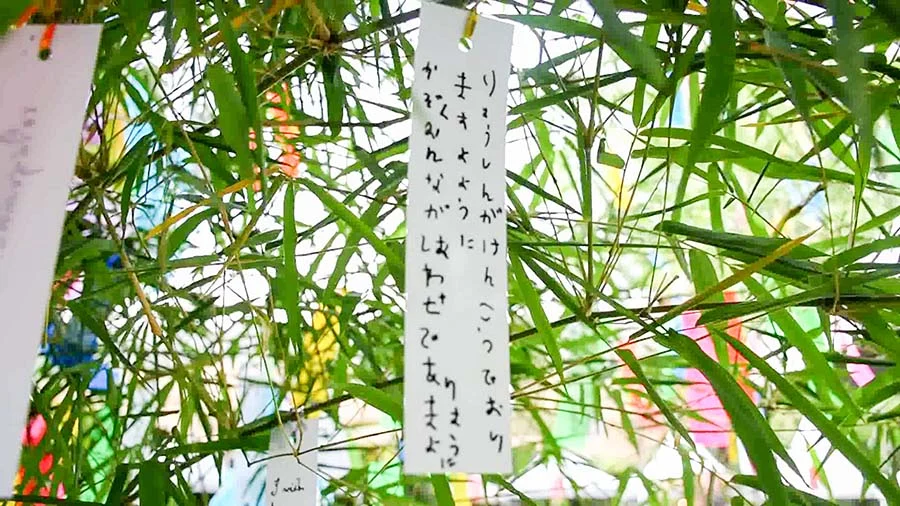 りょうしんがけんこうでおり
ますように
かぞくみんながしあわせでありますように
I wish